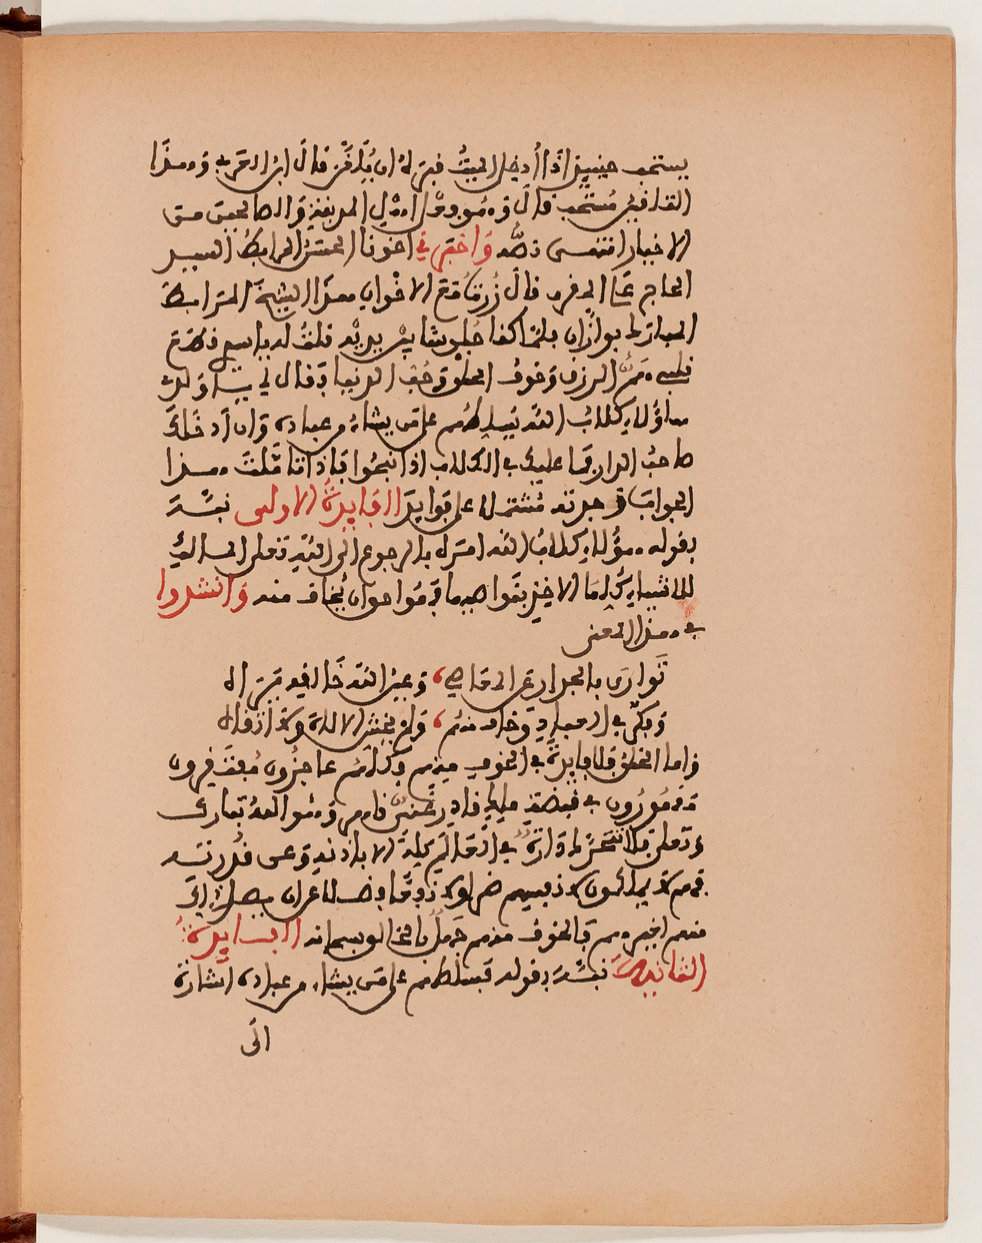 يستحب حينئذ اذا أدخل الميتُ قبره ان يُلَقَّن قال ابن العربي وهذا
التلقين مُستحب قال وهو فعل اهل المدينة والصالحين من
الاخيار انتهى نصُّه وَاخبَرني اخونا المحتسب المرابط السيد
الحاج قال زُرنا مع الاخوان هذا الشيخ المرابط
المبارك بوازان بلمّا كنا جُلوسًا بين يديْه قلتُ له يا سيدي
نفسي همُّ الرزق وخوف الخلق وحُبّ الدنيا فقال لي يا ولدي
هاؤلاء كلابُ الله يسلطهم على من يشاء من عباده وان ادخلك
صاحبُ الدار فما عليك في الكلاب اذا نبحوا فاذا تاملت هذا
الجوابَ وجدته مُشتملا على فوايدَ الفايدةُ الاولى نبَّه
بقوله هؤلاء كلابُ الله امرَك بالرجوع الى الله تعلى المالك
للاشياء كلها الاخذ بنواصيها فهُوَ احق ان يُخاف منه وَانشدوا
في هذا المعنى
تَوارَى بالجدار عن المعاصي، وعينُ الله خالقه تراه
وَفكّر في العبادِ وخاف منهُم، ولم يخش الاله وقد اتقاه
واما الخلق فلا فايدةَ في الخوف منهم فكلهم عاجزُون مُفتقرون
مقهورُون في قبضةِ مليك قادر غنيٍّ قاهر وهو اللهُ تبارك
وتعلى فلا تتحرَّك ذَرّةٌ في العالم كله الا باذنه وعن قُدرته
فهم لا يملكون لانفسهم ضرا ولا نفعا فضلا عن ان يصل اليك
منهم غيرهم فالخوف منهم جَهلٌ بالخالق سبحانه الفايدةُ
الثانيةُ نبَّه بقوله يسلطهم على من يشاء من عباده اشارة
الى